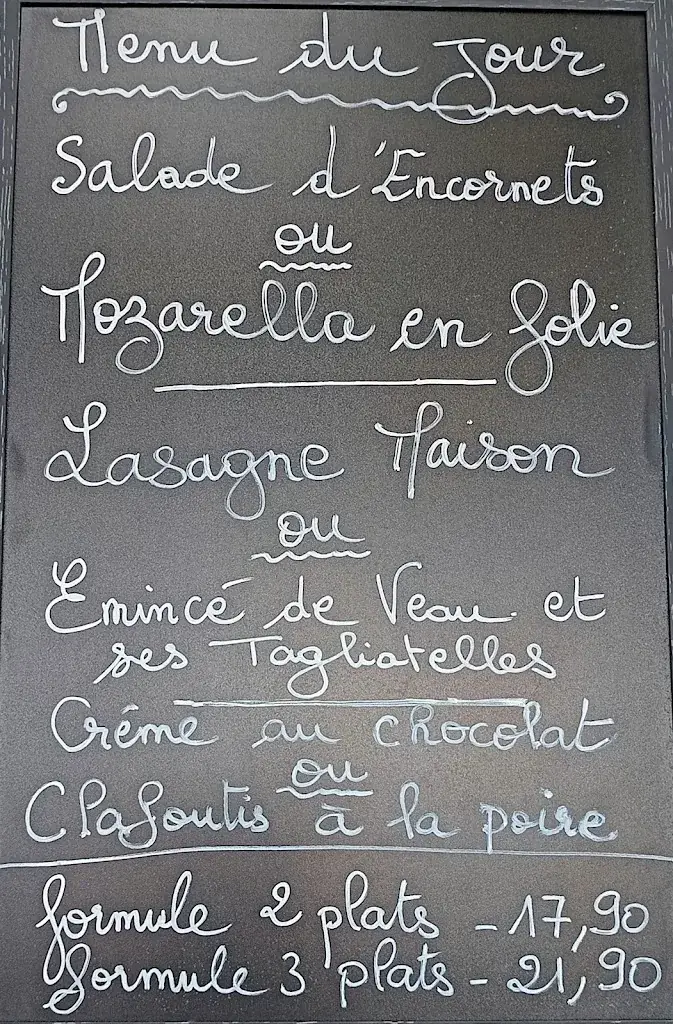 Menu du jour
Salade d'Encornets
ou
Mozarella en folie
Lasagne Maison
ou
Emincé de Veau et
ses Tagliatelles
Crême au chocolat
ou
Clafoutis à la poire
formule 2 plats - 17,90
formule 3 plats - 21,90